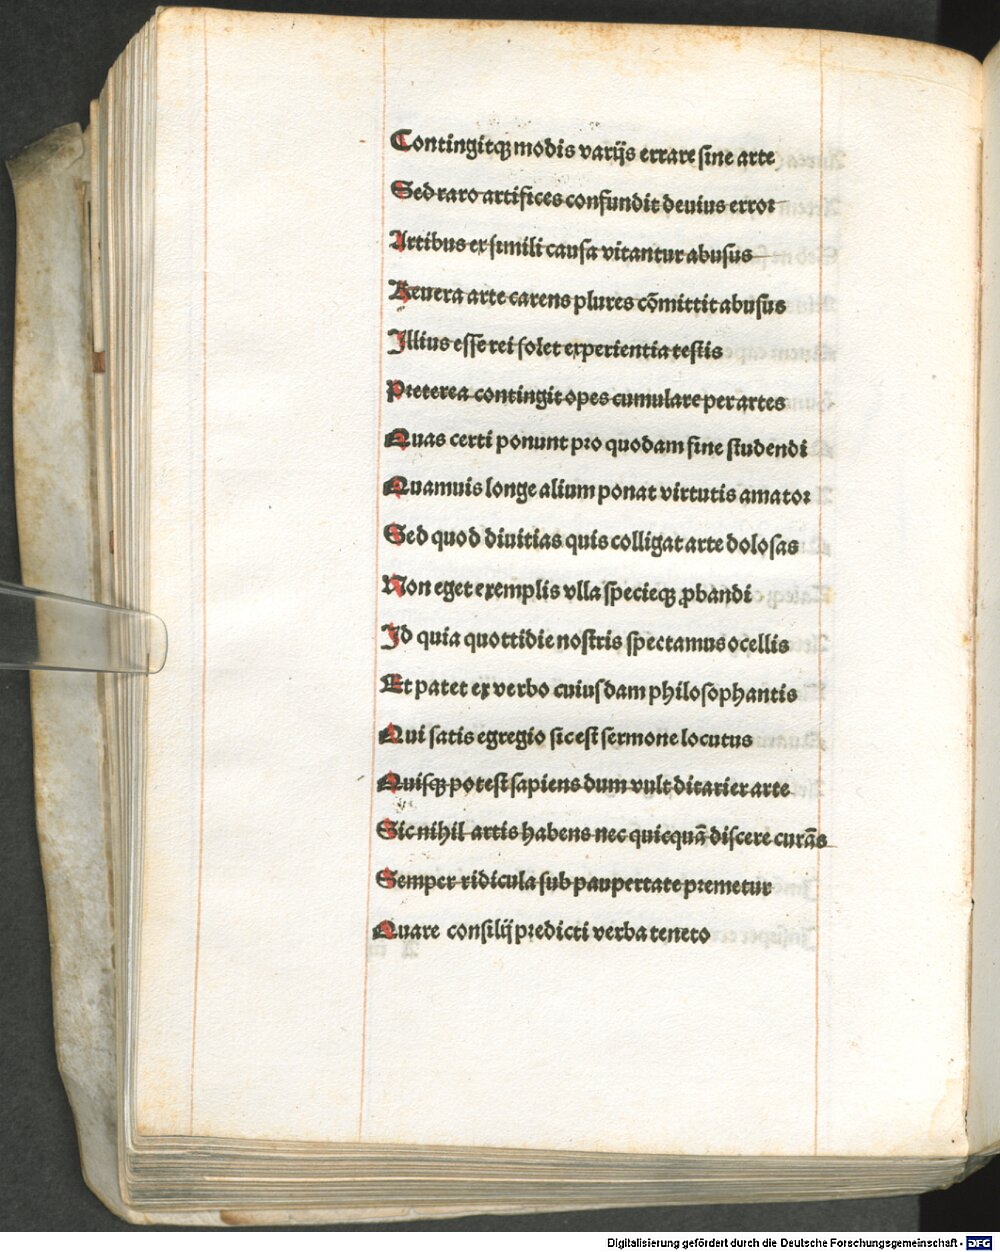 Contingitqꝫ modis varijs errare sine arte
Sed raro artifices confundit deuius error
Artibus ex simili causa vitantur abusus
Reuera arte carens plures cōmittit abusus
Illius esse rei solet experientia testis
Preterea contingit opes cumulare per artes
Quas certi ponunt pro quodam fine studendi
Quamuis longe alium ponat virtutis amator
Sed quod diuitias quis colligat arte dolosas
Non eget exemplis vlla specieqꝫ ꝓbandi
Id quia quottidie nostris spectamus ocellis
Et patet ex verbo cuiusdam philosophantis
Qui satis egregio sic est sermone locutus
Quisqꝫ potest sapiens dum vult ditarier arte
Sic nihil artis habens nec quicquā discere curās
Semper ridicula sub paupertate premetur
Quare consilij predicti verba teneto
Digitalisierung gefördert durch die Deutsche Forschungsgemeinschaft - DFG